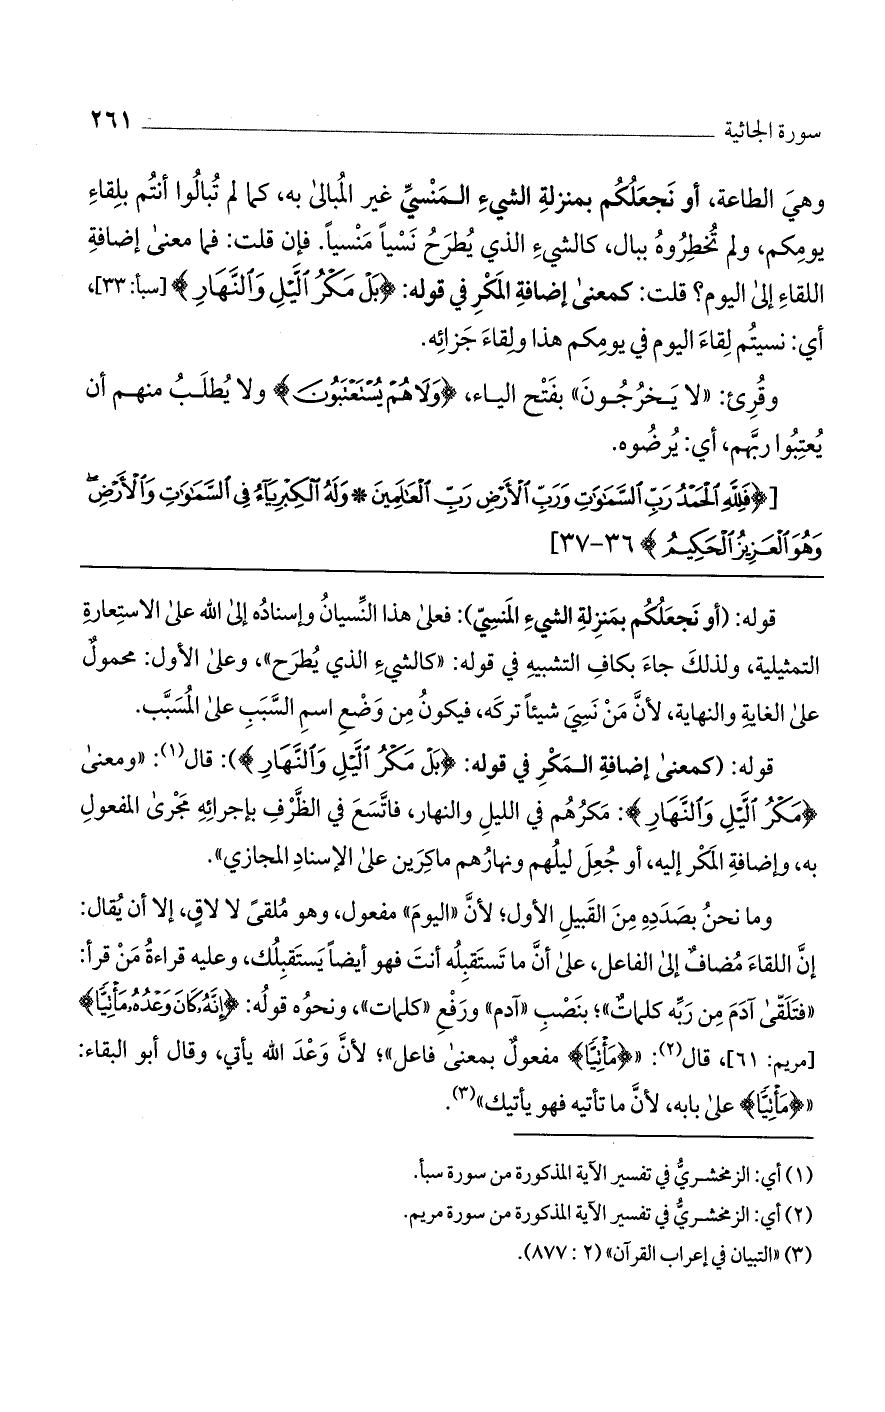 سورة الجاثية ٢٦١
وهيَ الطاعة، أو نَجعَلُكُم بمنزلةِ الشيءِ الـمَنْسيِّ غير المُبالىٰ به، كما لم تُبالُوا أنتُم بلِقاءِ
يومِكم، ولم تُخطِرُوهُ ببال، كالشيءِ الذي يُطرَحُ نَسْياً مَنْسياً. فإن قلت: فما معنىٰ إضافةِ
اللقاءِ إلىٰ اليوم؟ قلت: كمعنىٰ إضافةِ المَكْرِ في قوله: ﴿بَلْ مَكْرُ ٱلَّيْلِ وَٱلنَّهَارِ﴾ [سبأ: ٣٣]،
أي: نسيتُم لِقاءَ اليوم في يومِكم هذا ولِقاءَ جَزائِه.
وقُرِئ: «لا يَـخرُجُـونَ» بفَتْح اليـاء، ﴿وَلَا هُمْ يُسْتَعْتَبُونَ﴾ ولا يُطلَـبُ منهـم أن
يُعتِبُوا ربَّهم، أي: يُرضُوه.
[﴿فَلِلَّهِ ٱلْحَمْدُ رَبِّ ٱلسَّمَٰوَٰتِ وَرَبِّ ٱلْأَرْضِ رَبِّ ٱلْعَٰلَمِينَ * وَلَهُ ٱلْكِبْرِيَآءُ فِى ٱلسَّمَٰوَٰتِ وَٱلْأَرْضِ ۖ
وَهُوَ ٱلْعَزِيزُ ٱلْحَكِيمُ﴾ ٣٦-٣٧]
قوله: (أو نَجعَلُكُم بمَنزِلةِ الشيءِ المَنسِيّ): فعلىٰ هذا النِّسيانُ وإسنادُه إلىٰ الله علىٰ الاستِعارةِ
التمثيلية، ولذلكَ جاءَ بكافِ التشبيهِ في قوله: «كالشيءِ الذي يُطرَح»، وعلىٰ الأول: محمولٌ
علىٰ الغايةِ والنهاية، لأنَّ مَنْ نَسِيَ شيئاً تركَه، فيكونُ مِن وَضْعِ اسمِ السَّبَبِ علىٰ المُسَبَّب.
قوله: (كمعنىٰ إضافةِ الـمَكْرِ في قوله: ﴿بَلْ مَكْرُ ٱلَّيْلِ وَٱلنَّهَارِ﴾): قال(١): «ومعنىٰ
﴿مَكْرُ ٱلَّيْلِ وَٱلنَّهَارِ﴾: مَكرُهُم في الليلِ والنهار، فاتَّسَعَ في الظَّرْفِ بإجرائِهِ مَجْرىٰ المفعولِ
به، وإضافةِ المَكْر إليه، أو جُعِلَ ليلُهم ونهارُهم ماكِرَين علىٰ الإسنادِ المجازي».
وما نحنُ بصَدَدِهِ مِنَ القَبيلِ الأول؛ لأنَّ «اليومَ» مفعول، وهو مُلقىً لا لاقٍ، إلا أن يُقال:
إنَّ اللقاءَ مُضافٌ إلىٰ الفاعل، علىٰ أنَّ ما تَستَقبِلُه أنتَ فهو أيضاً يَستَقبِلُك، وعليه قراءةُ مَنْ قرأ:
«فتَلَقّىٰ آدَمَ مِن رَبِّه كلماتٌ»؛ بنَصْبِ «آدم» ورَفْعِ «كلمات»، ونحوُه قولُه: ﴿إِنَّهُۥ كَانَ وَعْدُهُۥ مَأْتِيًّا﴾
[مريم: ٦١]، قال(٢): «﴿مَأْتِيًّا﴾ مفعولٌ بمعنىٰ فاعل»؛ لأنَّ وَعْدَ الله يأتي، وقال أبو البقاء:
«﴿مَأْتِيًّا﴾ علىٰ بابه، لأنَّ ما تأتيه فهو يأتيك»(٣).
(١) أي: الزمخشـريُّ في تفسير الآية المذكورة من سورة سبأ.
(٢) أي: الزمخشـريُّ في تفسير الآية المذكورة من سورة مريم.
(٣) «التبيان في إعراب القرآن» (٢ : ٨٧٧).